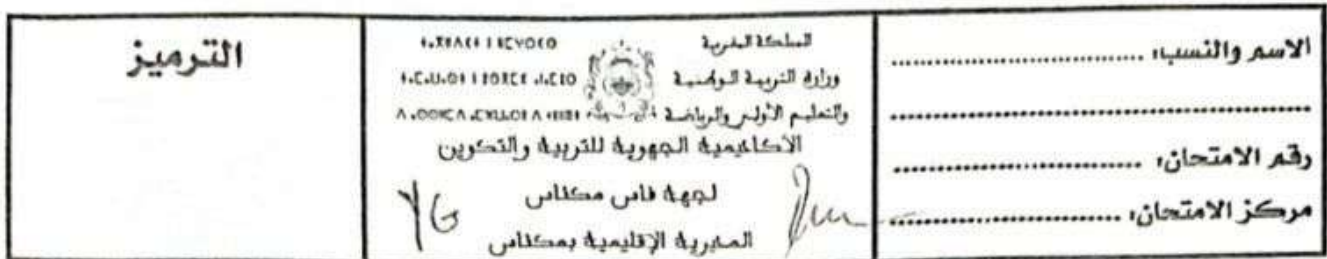 الاسم والنسب: ..............................
..........................................
رقم الامتحان: ..........................
مركز الامتحان: ..........................
المملكة المغربية
وزارة التربية الوطنية
والتعليم الأولي والرياضة
الأكاديمية الجهوية للتربية والتكوين
لجهة فاس مكناس
المديرية الإقليمية بمكناس
الترميز